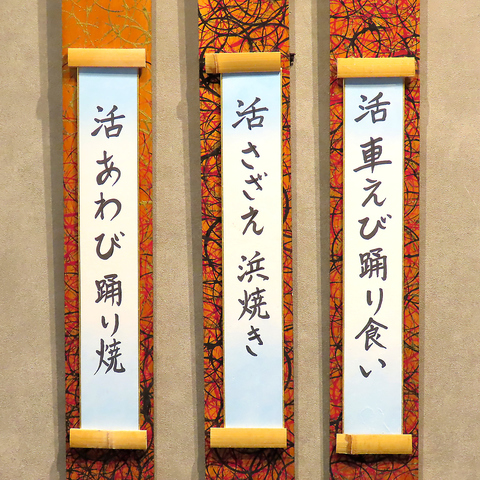 活 車えび踊り食い
活 さざえ 浜焼き
活 あわび 踊り焼